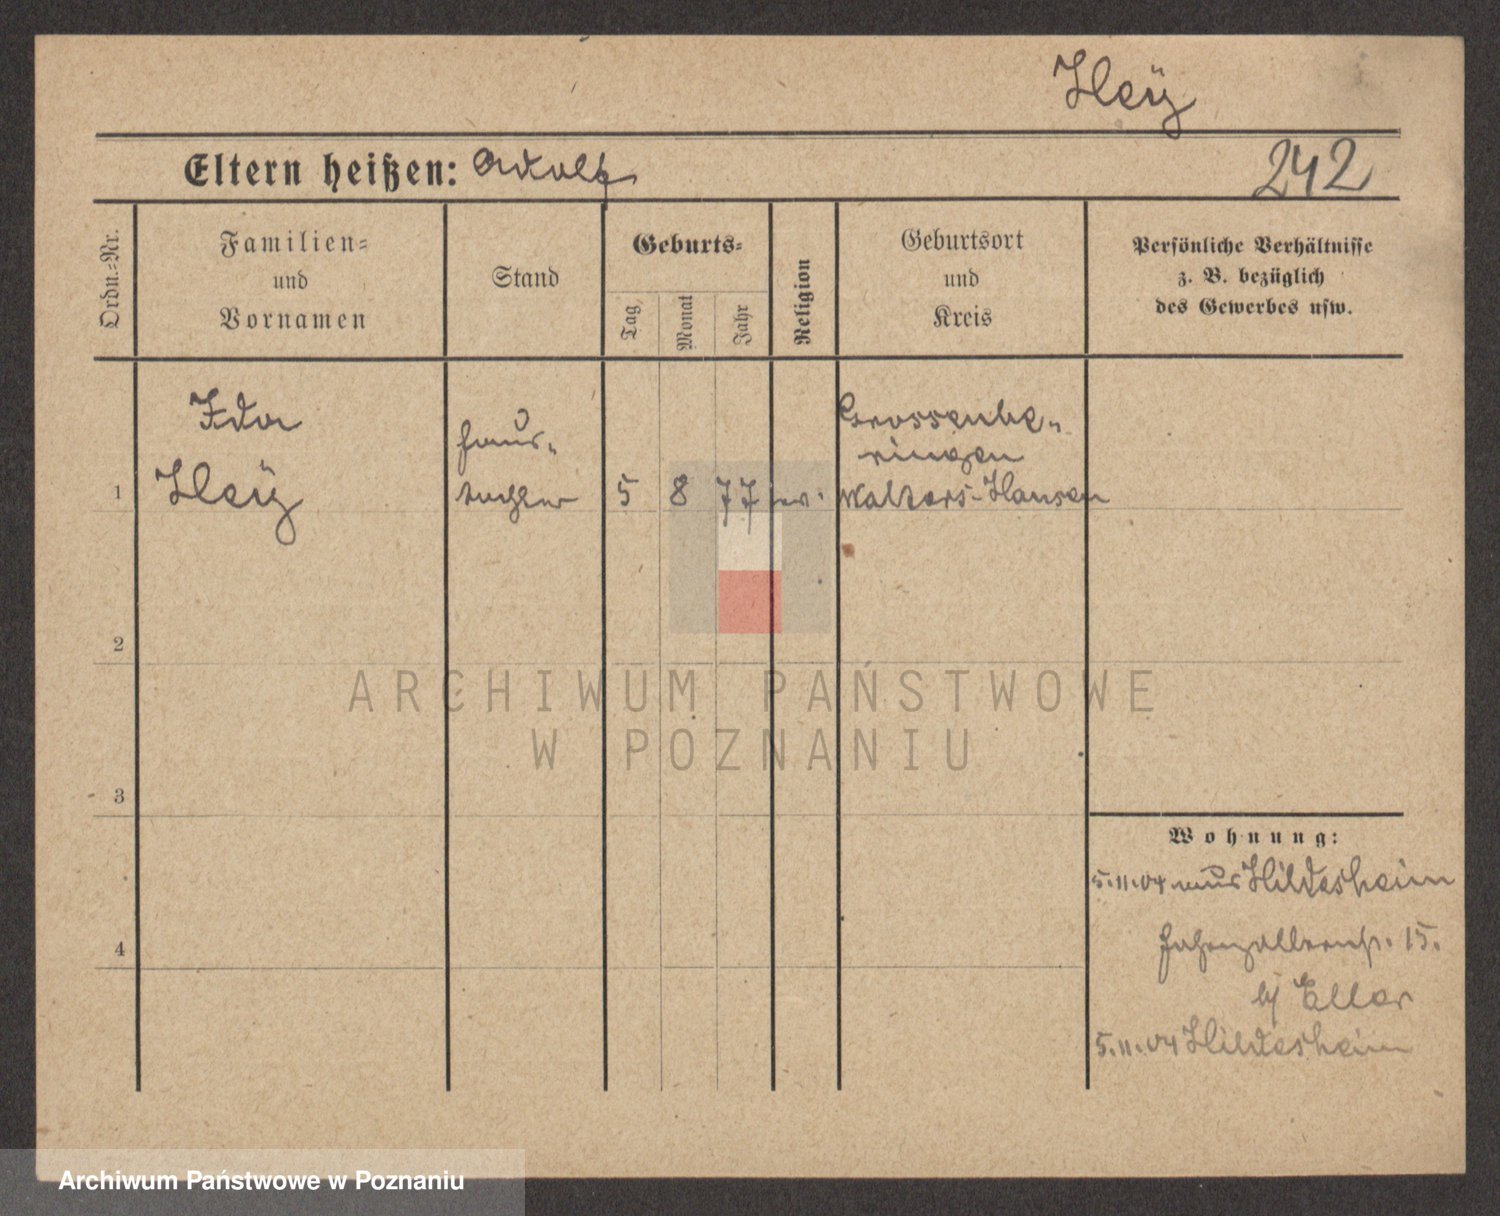 Heÿ
Eltern heißen: Adolf
242
Ordn.-Nr.
Familien-
und
Vornamen
Stand
Geburts-
Tag
Monat
Jahr
Religion
Geburtsort
und
Kreis
Persönliche Verhältnisse
z. B. bezüglich
des Gewerbes usw.
1
Ida
Heÿ
Haus-
tochter
5 8 77
ev.
Grossenbe-
ringen
Walters-Hausen
2
3
4
Wohnung:
5.11.04 aus Hildesheim
Hohenzollernstr. 15.
bj
5.11.04 Hildesheim
ARCHIWUM PAŃSTWOWE
W POZNANIU
Archiwum Państwowe w Poznaniu